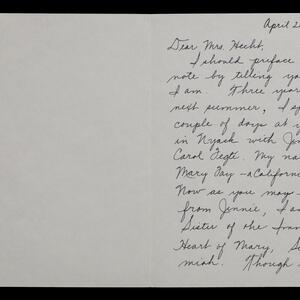 April 2
Dear Mrs. Hecht,
I should preface
note by telling yo
I am. Three year
next summer, I s
couple of days at y
in Nyack with Jen
Carol Tegté. My na
Mary Fay - a Californi
Now as you may
from Jennie, I am
Sister of the Imm
Heart of Mary, S
miah. Though